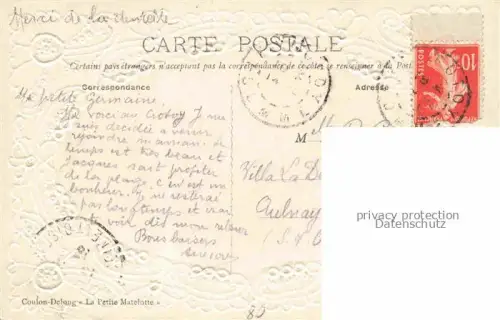 Merci de la
CARTE POSTALE
Certains pays étrangers n'acceptent pas la correspondance de ce côté se renseigner à la Post
Correspondance
Adresse
Ma petite Germaine.
Me voici au Crotoy Je me
suis décidée à venir
rejoindre maman. Le
temps est très beau et
Jacques sait profiter
de la plage. c'est un
bonheur. Je ne resterai
pas longtemps et irai
te voir dès mon retour
Bons baisers
Melle
Villa La
Aulnay
10
privacy protection
Datenschutz
Coulon-Debury « La Petite Matelotte ».
80